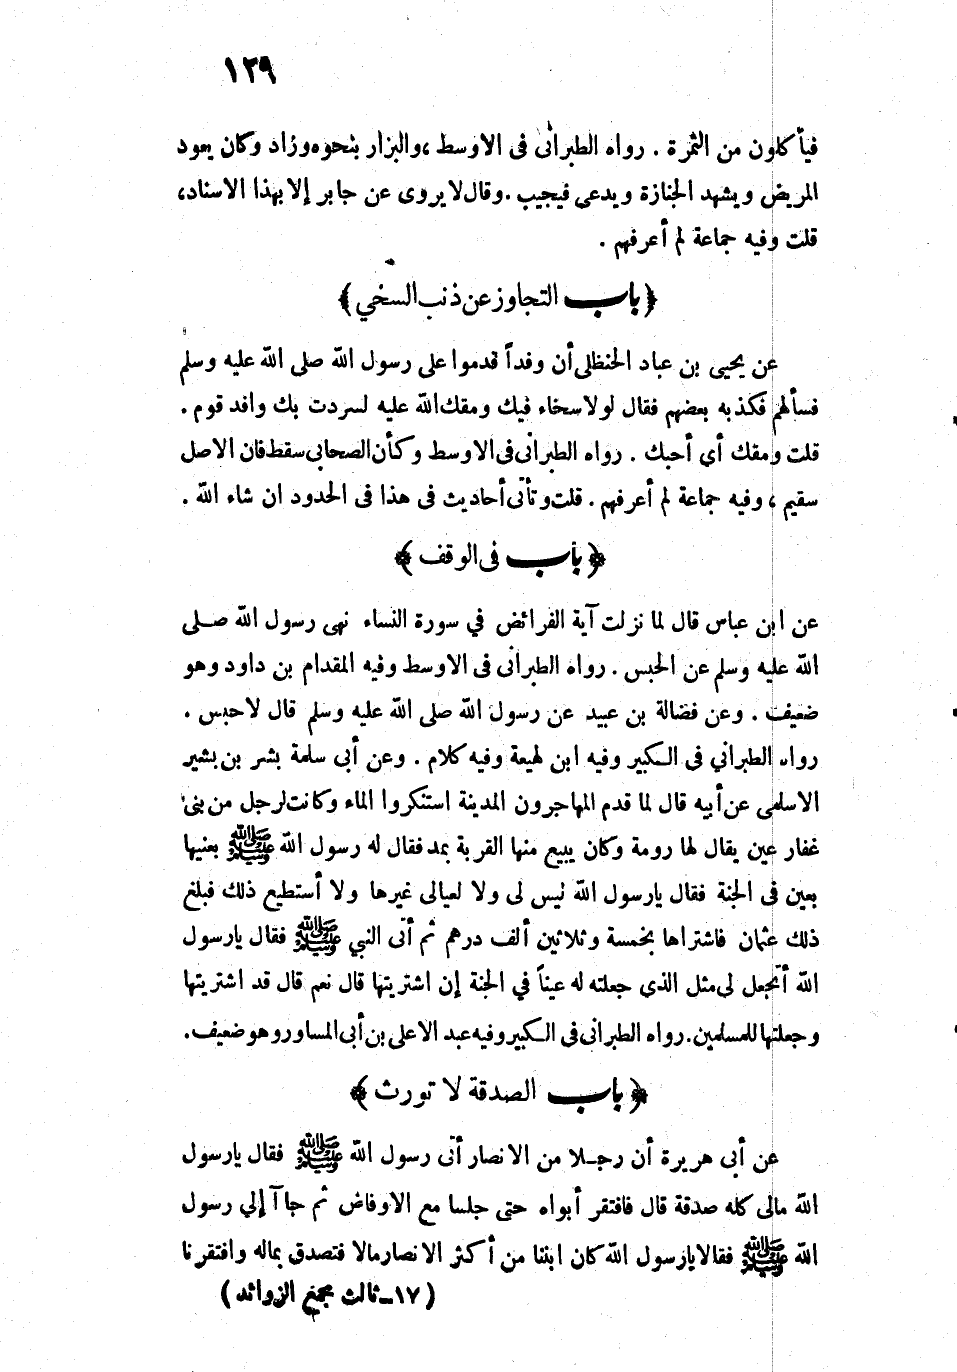 ١٢٩
فيأكلون من الثمرة . رواه الطبرانى فى الاوسط ،والبزار بنحوه وزاد وكان يعود
المريض ويشهد الجنازة ويدعى فيجيب .وقال لا يروى عن جابر إلا بهذا الاسناد،
قلت وفيه جماعة لم أعرفهم .
﴿ باب التجاوز عن ذنب السخي ﴾
عن يحيى بن عباد الحنظلى أن وفداً قدموا على رسول الله صلى الله عليه وسلم
فسألهم فكذبه بعضهم فقال لولا سخاء فيك ومقك الله عليه لسردت بك وافد قوم .
قلت ومقك أي أحبك . رواه الطبرانى فى الاوسط وكأن الصحابى سقط فان الاصل
سقيم ، وفيه جماعة لم أعرفهم . قلت وتأتى أحاديث فى هذا فى الحدود ان شاء الله .
﴿ باب فى الوقف ﴾
عن ابن عباس قال لما نزلت آية الفرائض في سورة النساء نهى رسول الله صلى
الله عليه وسلم عن الحبس . رواه الطبرانى فى الاوسط وفيه المقدام بن داود وهو
ضعيف . وعن فضالة بن عبيد عن رسول الله صلى الله عليه وسلم قال لا حبس .
رواه الطبراني فى الكبير وفيه ابن لهيعة وفيه كلام . وعن أبى سلمة بشر بن بشير
الاسلمى عن أبيه قال لما قدم المهاجرون المدينة استنكروا الماء وكانت لرجل من بنى
غفار عين يقال لها رومة وكان يبيع منها القربة بمد فقال له رسول الله ﷺ بعنيها
بعين فى الجنة فقال يارسول الله ليس لى ولا لعيالى غيرها ولا أستطيع ذلك فبلغ
ذلك عثمان فاشتراها بخمسة وثلاثين ألف درهم ثم أتى النبي ﷺ فقال يارسول
الله أتجعل لى مثل الذى جعلته له عيناً في الجنة إن اشتريتها قال نعم قال قد اشتريتها
وجعلتها للمسلمين.رواه الطبرانى فى الكبير وفيه عبد الاعلى بن أبى المساور وهو ضعيف.
﴿ باب الصدقة لا تورث ﴾
عن أبى هريرة أن رجلا من الانصار أتى رسول الله ﷺ فقال يارسول
الله مالى كله صدقة قال فافتقر أبواه حتى جلسا مع الاوفاض ثم جاآ إلي رسول
الله ﷺ فقالا يارسول الله كان ابننا من أكثر الانصار مالا فتصدق بماله وافتقرنا
( ١٧ــ ثالث مجمع الزوائد )